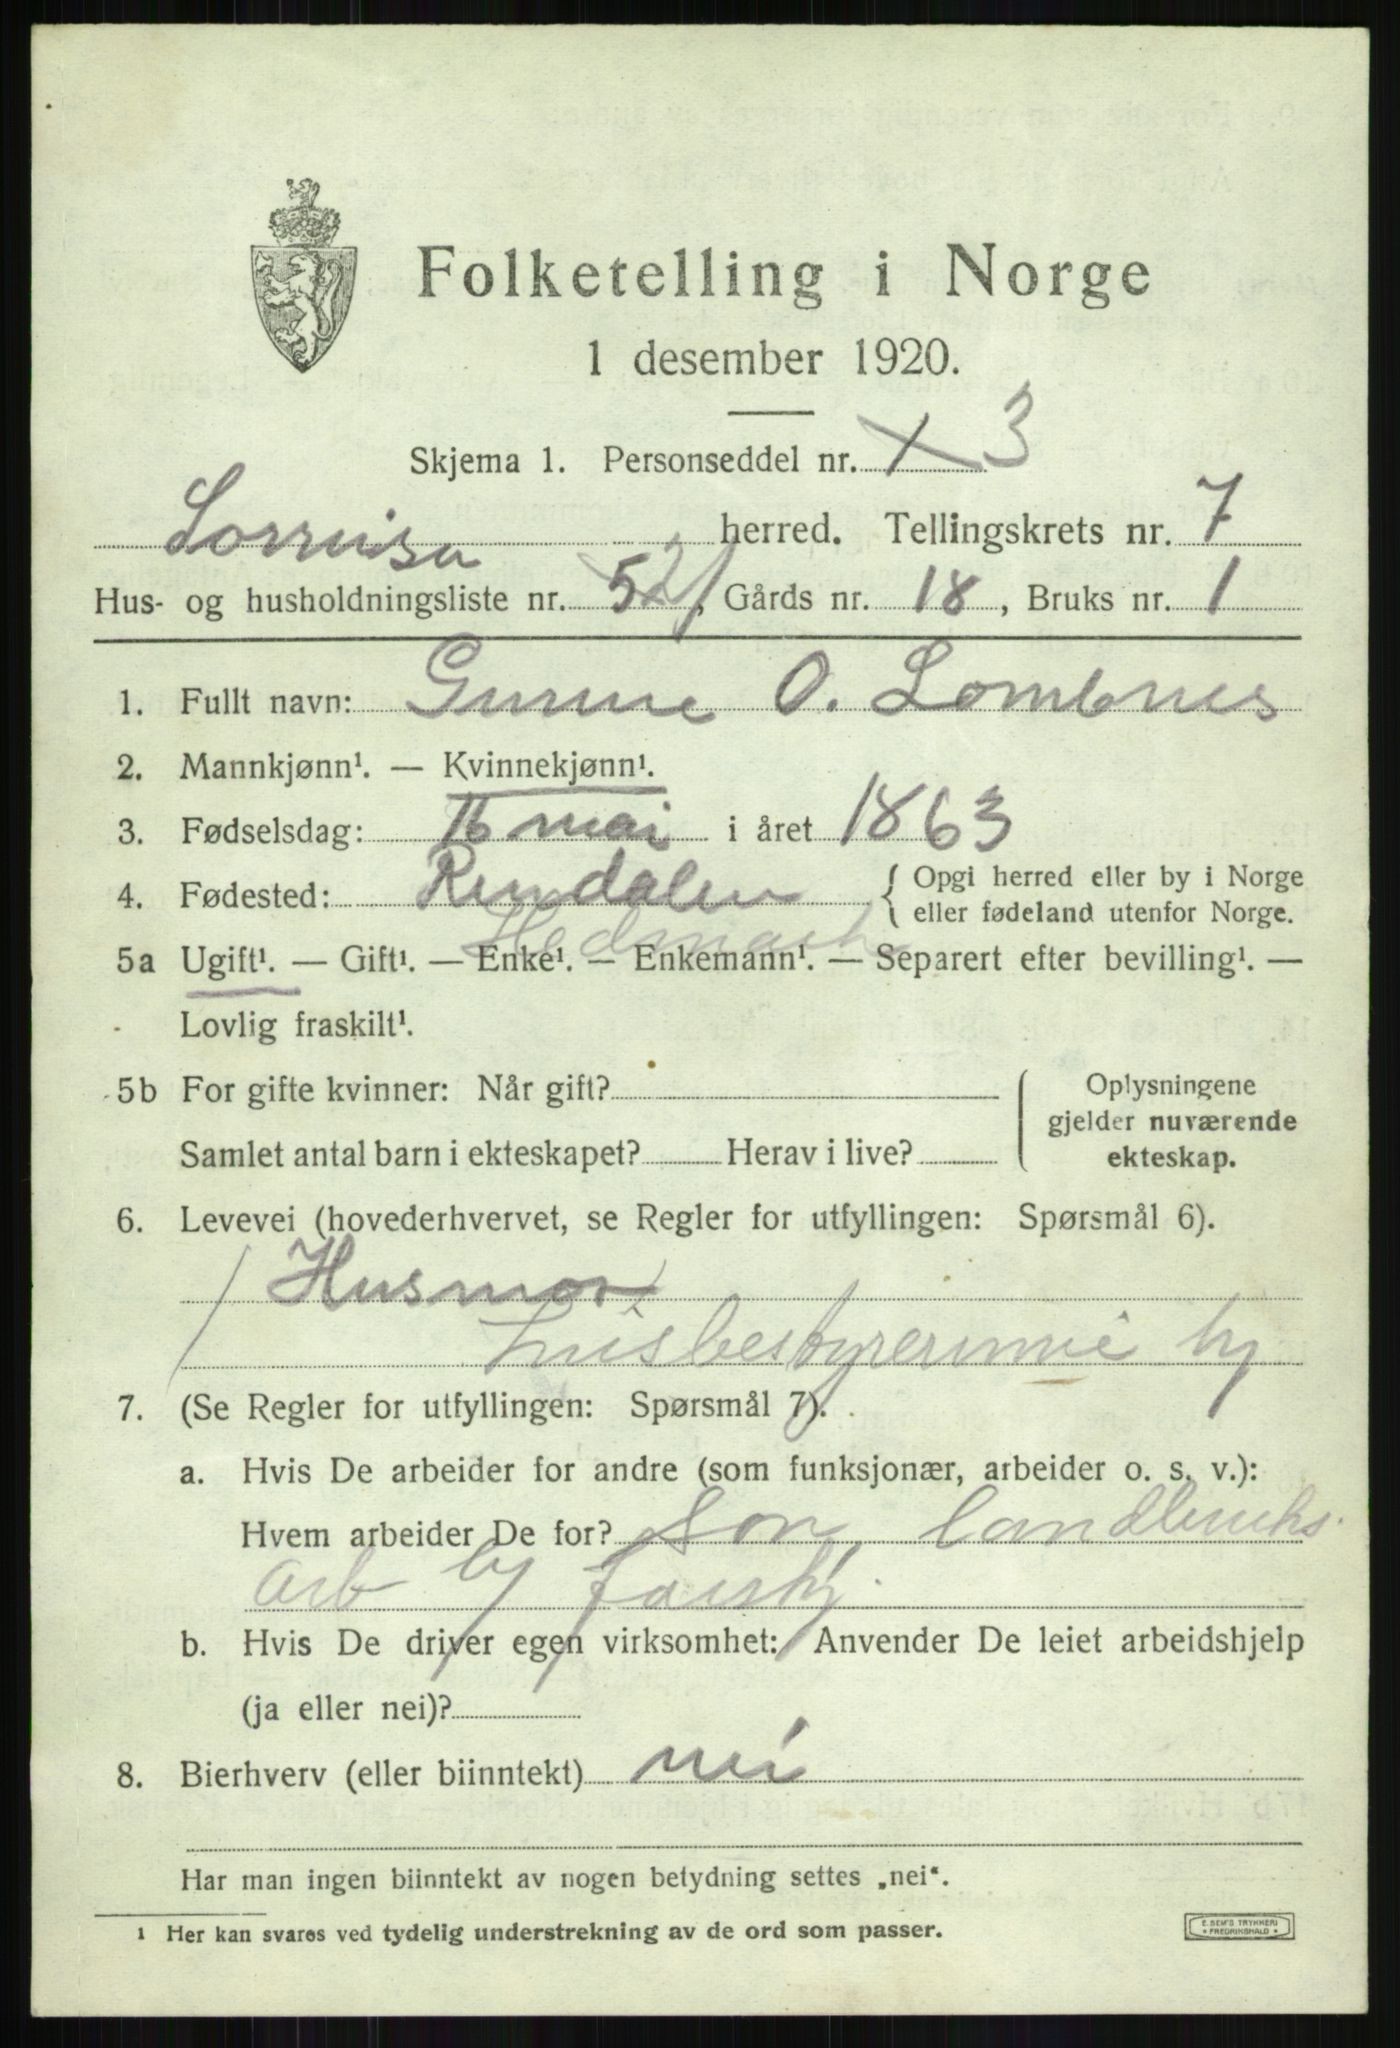 Folketelling i Norge
1 desember 1920.
Skjema 1. Personseddel nr. 3
Sorreisa herred. Tellingskrets nr. 7
Hus- og husholdningsliste nr. 521, Gårds nr. 18, Bruks nr. 1
1. Fullt navn: Gurine O. Lombnes
2. Mannkjønn¹. — Kvinnekjønn¹.
3. Fødselsdag: 16 mai i året 1863
4. Fødested: Rendalen { Opgi herred eller by i Norge
eller fødeland utenfor Norge.
Hedmark
5a Ugift¹. — Gift¹. — Enke¹. — Enkemann¹. — Separert efter bevilling¹. —
Lovlig fraskilt¹.
5b For gifte kvinner: Når gift? Oplysningene
gjelder nuværende
Samlet antal barn i ekteskapet? Herav i live? ekteskap.
6. Levevei (hovederhvervet, se Regler for utfyllingen: Spørsmål 6).
Husmor
husbestyrerinne
7. (Se Regler for utfyllingen: Spørsmål 7).
a. Hvis De arbeider for andre (som funksjonær, arbeider o. s. v.):
Hvem arbeider De for? Son, landbruks.
arb
b. Hvis De driver egen virksomhet: Anvender De leiet arbeidshjelp
(ja eller nei)?
8. Bierhverv (eller biinntekt) nei
Har man ingen biinntekt av nogen betydning settes „nei“.
¹ Her kan svares ved tydelig understrekning av de ord som passer.
E. SEM'S TRYKKERI
FREDRIKSHALD